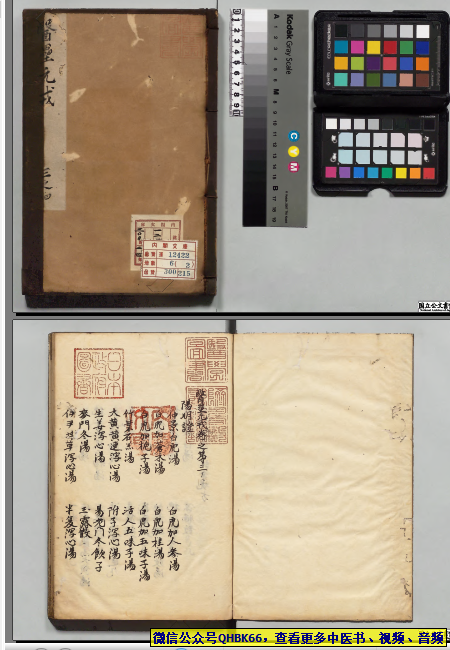 醫壘元戎
三之四
内閣文庫
番號 漢 12422
冊數 6(2)
函號 300 215
Kodak Gray Scale
A
M
B
C
Y
M
国立公文書
日本政府圖書
醫壘元戎卷之第三
陽明證
白虎湯
白虎加人參湯
白虎加蒼朮湯
白虎加桂湯
白虎加梔子湯
白虎加五味子湯
竹葉石膏湯
活人五味子湯
大黃黃連瀉心湯
附子瀉心湯
生姜瀉心湯
易老門冬飲子
麥門冬湯
玉露散
伊尹甘草瀉心湯
半夏瀉心湯
微信公众号QHBK66，查看更多中医书、视频、音频